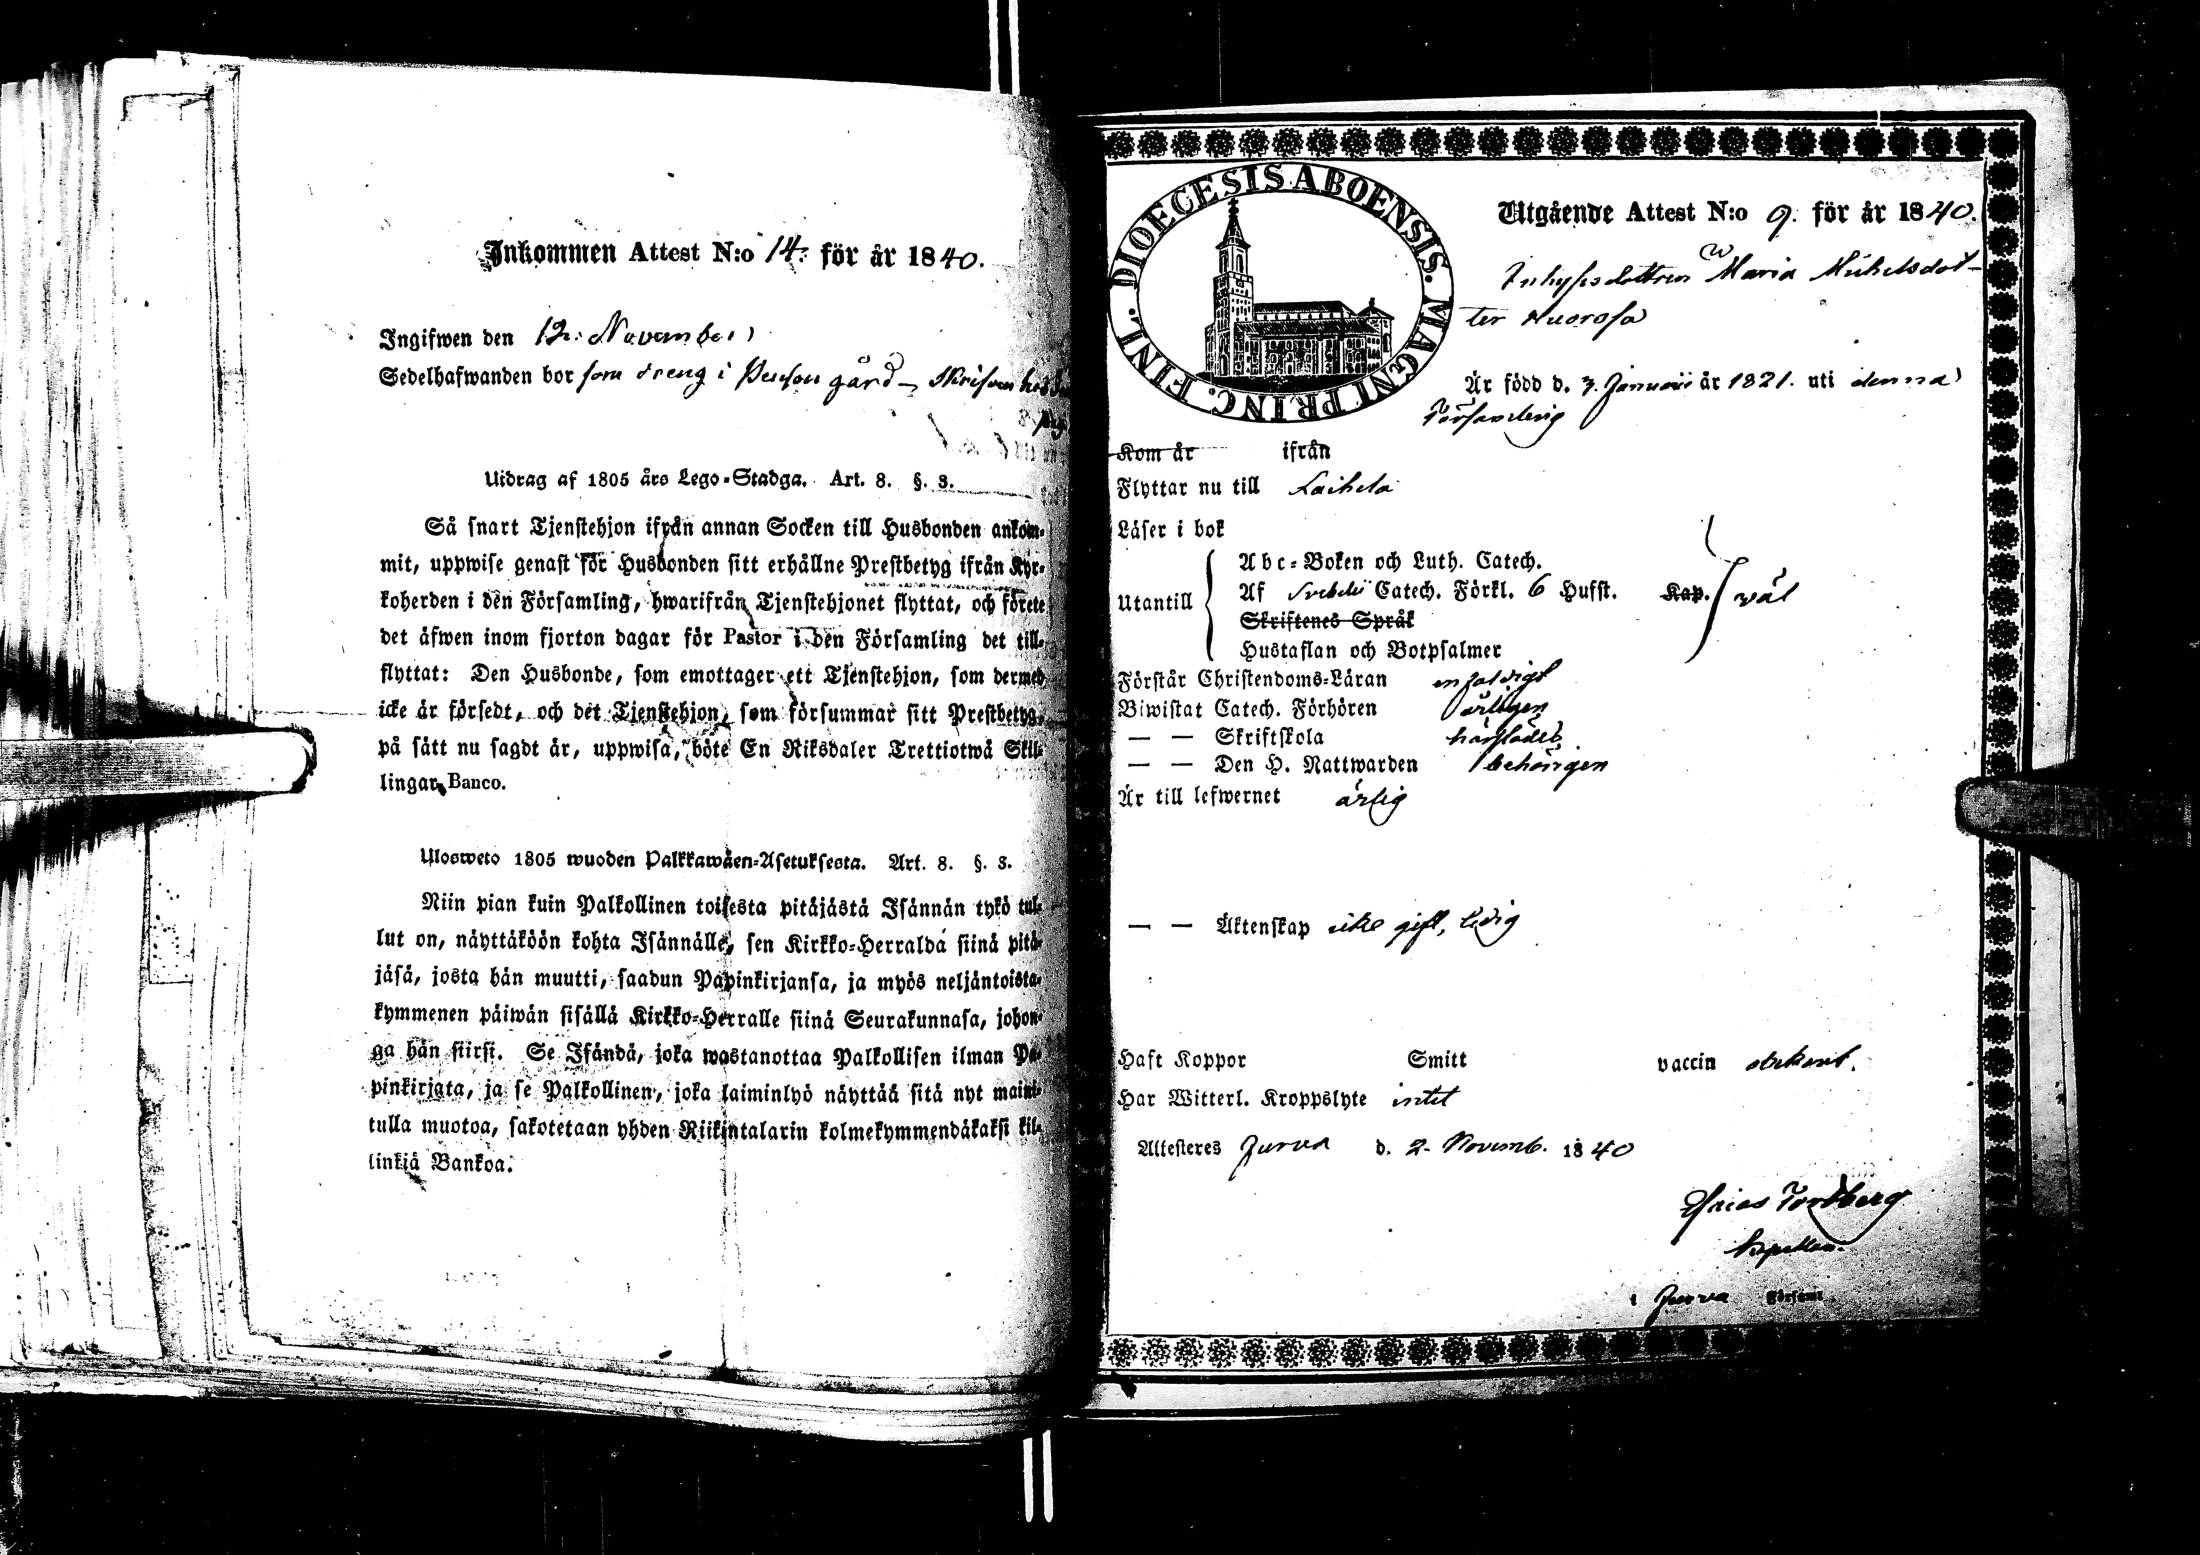 Inkommen Attest N:o 14. för år 1840.
Ingifwen den 12. November
Sedelhafwanden bor som dreng i gård skrifven hos
Utdrag af 1805 års Lego-Stadga. Art. 8. §. 3.
Så snart Tjenstehjon ifrån annan Socken till Husbonden ankom-
mit, uppwise genast för Husbonden sitt erhållne Prestbetyg ifrån Kyr-
koherden i den Församling, hwarifrån Tjenstehjonet flyttat, och förete
det äfwen inom fjorton dagar för Pastor i den Församling det till-
flyttat: Den Husbonde, som emottager ett Tjenstehjon, som dermed
icke är försedt, och det Tjenstehjon, som försummar sitt Prestbetyg,
på sätt nu sagdt är, uppwisa, böte En Riksdaler Trettiotwå Skil-
lingar Banco.
Ulosweto 1805 wuoden Palkkawäen-Asetuksesta. Art. 8. §. 3.
Niin pian kuin Palkollinen toisesta pitäjästä Isännän tykö tul-
lut on, näyttäköön kohta Isännälle, sen Kirkko-Herralda siinä pitä-
jäsä, josta hän muutti, saadun Papinkirjansa, ja myös neljäntoista-
kymmenen päiwän sisällä Kirkko-Herralle siinä Seurakunnasa, johon-
ga hän siirsi. Se Isändä, joka wastanottaa Palkollisen ilman Pa-
pinkirjata, ja se Palkollinen, joka laiminlyö näyttää sitä nyt maini-
tulla muotoa, sakotetaan yhden Riikintalarin kolmekymmendäkaksi kil-
linkiä Bankoa.
DIOECESIS ABOENSIS. MAGNI PRINC. FINL.
Utgående Attest N:o 9. för år 1840.
Inhysesdottren Maria Michelsdot-
ter Kuorosa
Är född d. 3. Januarii år 1821. uti denna
Församling
Kom år ifrån
Flyttar nu till Laihela
Läser i bok
Utantill
Abc-Boken och Luth. Catech.
Af Svebelii Catech. Förkl. 6 Hufst. Kap. väl
Skriftenes Språk
Hustaflan och Botpsalmer
Förstår Christendoms-Läran enfaldigt
Biwistat Catech. Förhören årligen
— — Skriftskola härstädes
— — Den H. Nattwarden behörigen
Är till lefwernet ärlig
— — Äktenskap icke gift, ledig
Haft Koppor Smitt vaccin
Har Witterl. Kroppslyte intet
Attesteres Jurva d. 2. Novemb. 1840
Esaias Tordberg
kapellan.
i Jurva Församl.